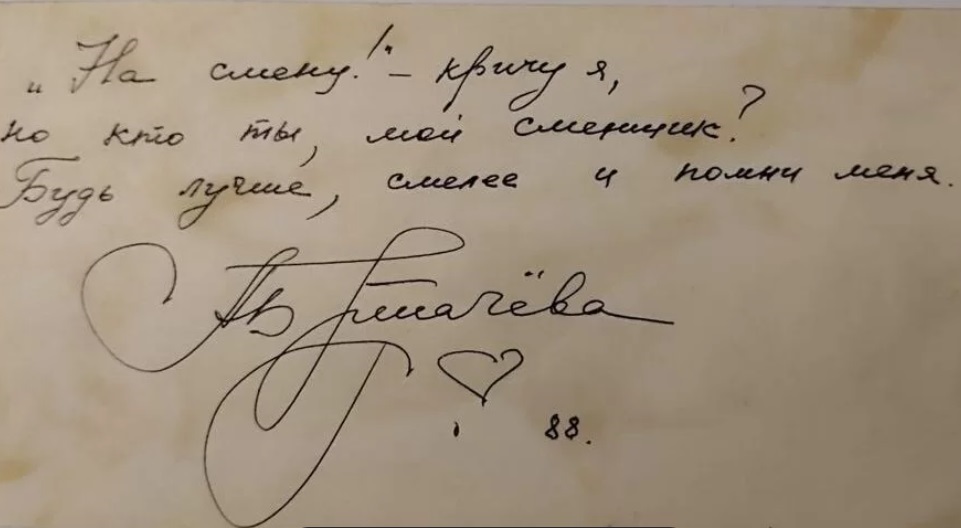 „На смену!“ – кричу я,
но кто ты, мой сменщик?
Будь лучше, смелее и помни меня.
АБПугачёва
88.